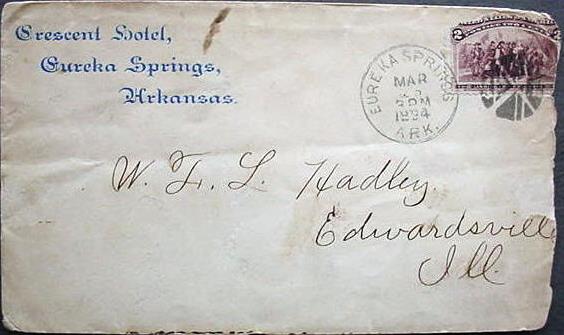 Crescent Hotel,
Eureka Springs,
Arkansas.
EUREKA SPRINGS
MAR
3 PM
1894
ARK.
2
2
W. F. L. Hadley.
Edwardsville
Ill.